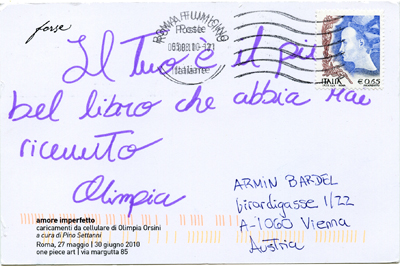 forse
ROMA FIUMICINO
Poste
Italiane
Il Tuo è il più
bel libro che abbia mai
ricevuto
Olimpia
ITALIA
€0,65
ARMIN BARDEL
Girardigasse 1/22
A-1060 Vienna
Austria
amore imperfetto
caricamenti da cellulare di Olimpia Orsini
a cura di Pino Settanni
Roma, 27 maggio | 30 giugno 2010
one piece art | via margutta 85